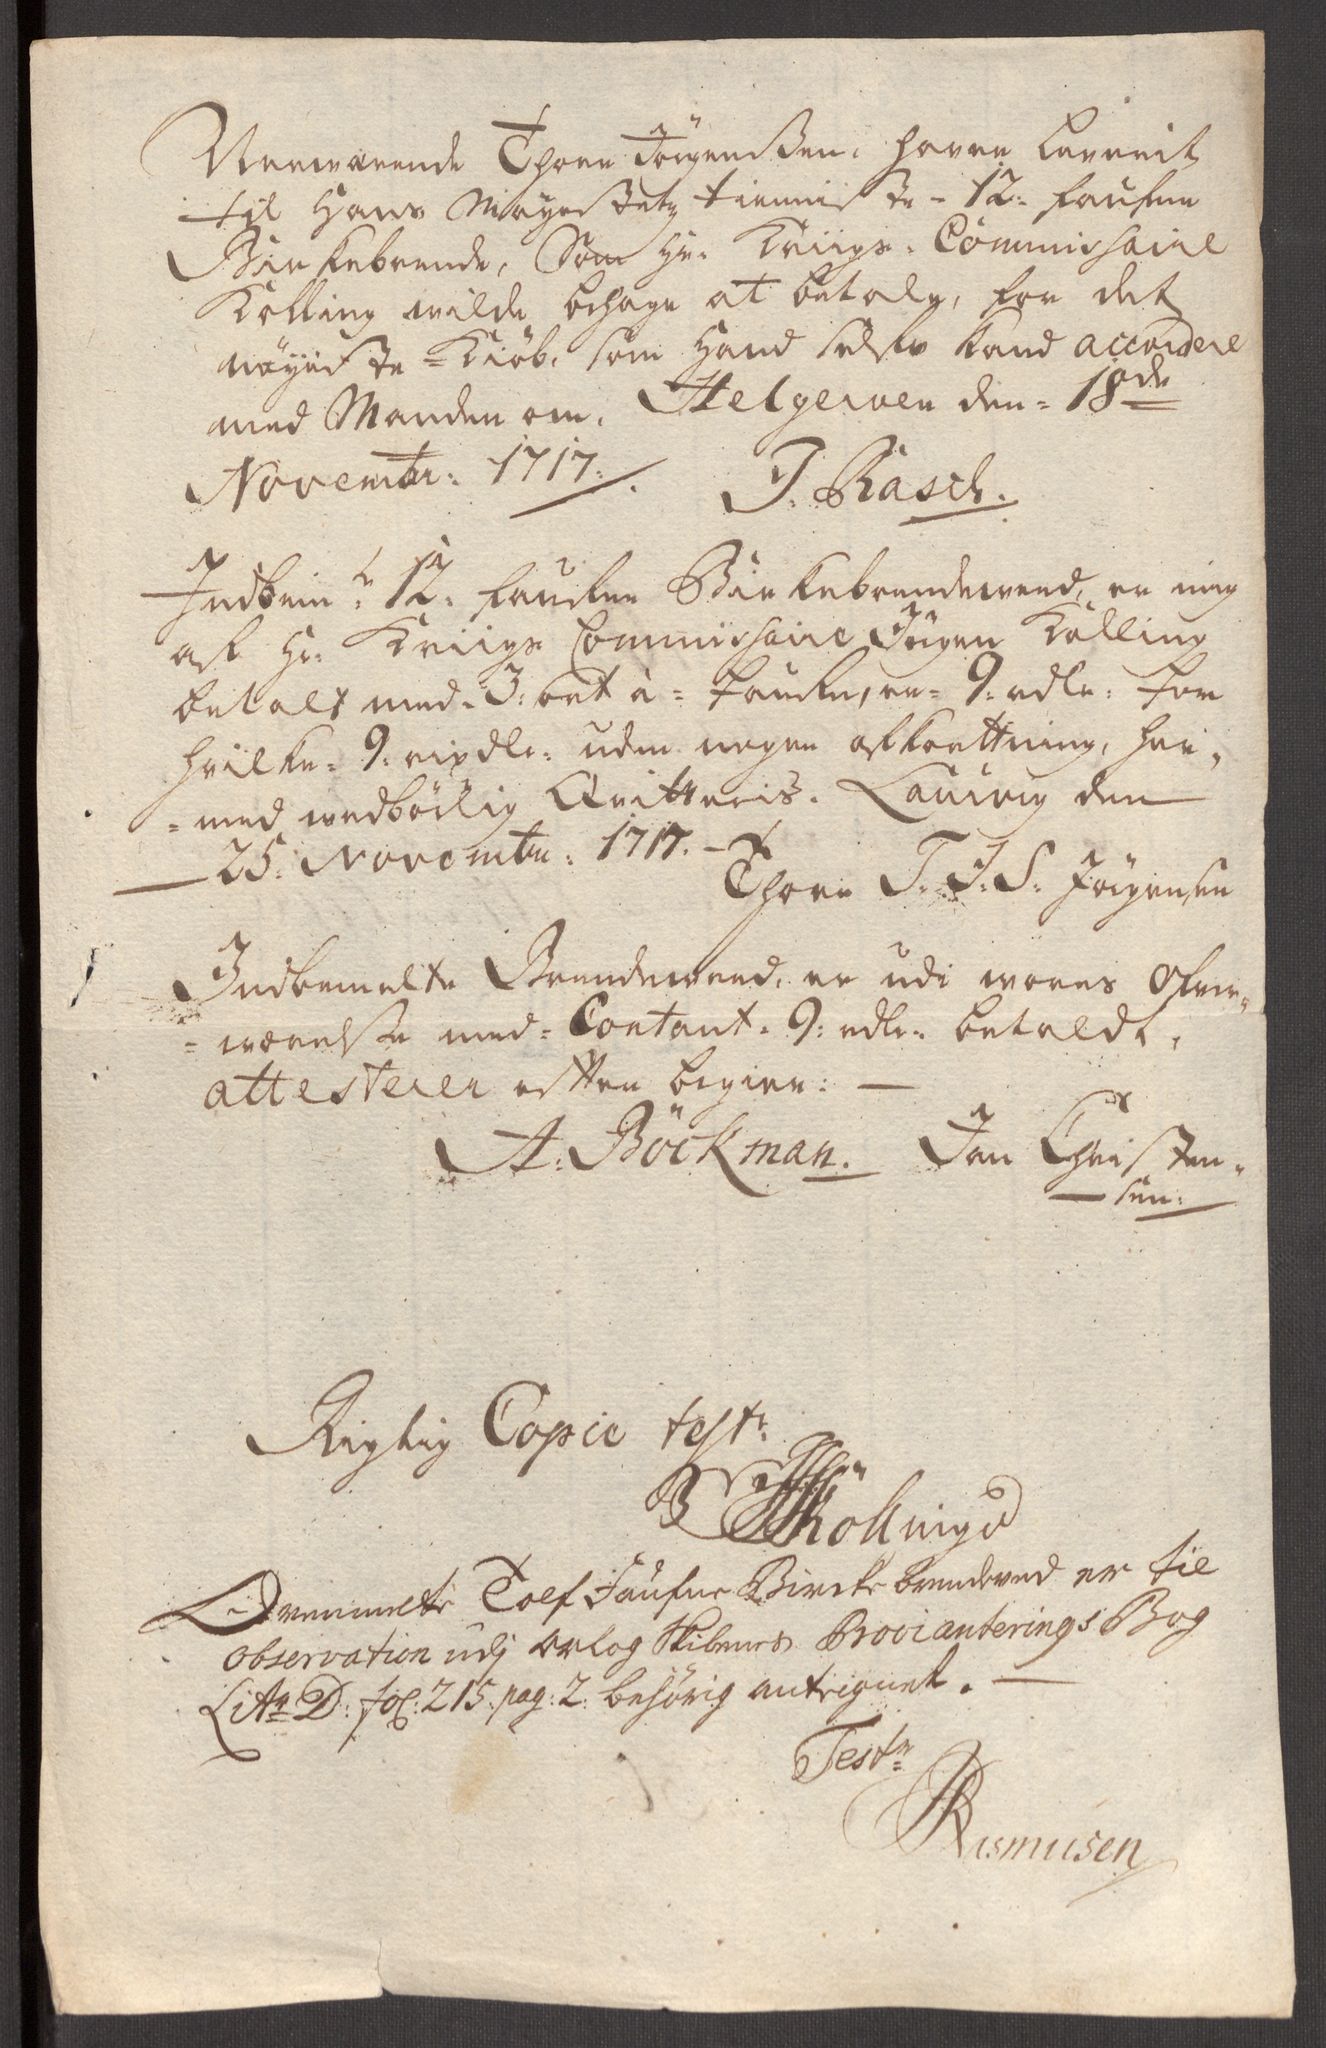 Nerwærende Thore Jörgensen, hawer Leverit
til Hans Mayestetz tienniste - 12: faufne
Birkebrende, Som Hr: Kriigs-Commissaire
Kölling wilde behage at betale, for det
nöyeste Kiöb, som Hand selfv kand accordere
med Manden om. Helgeroen den - 18de
Novembr: 1717.
J. Rasch.
Indbem:te 12: faufne Birkebrendeveed, er mig
af Hr: Kriigs Commissaire Jörgen Kölling
betalt med - 3: ort à - faufne, er - 9: rdlr: for
hvilke - 9: rixdlr: uden nogen afkortning, her-
-med wedbörlig Qvitteris. Laurvig den
25: Novembr: 1717.
Thore T. J. S. Jörgensen
Indbemelte Brendeveed, er udi wores Ofver-
-værelse med - Contant - 9: rdlr: betaldt,
attesterer efter begier: -
A: Böckman. Jan Christen-
sen:
Rigtig Copie test:
Kölling
Ovenmelte Tolf Faufne Bircke brendeved er til
observation udj orlog Skibenes Provianterings Bog
Litr D: fol: 215. pag: 2: behörig antegnet. -
Test:
Rasmusen